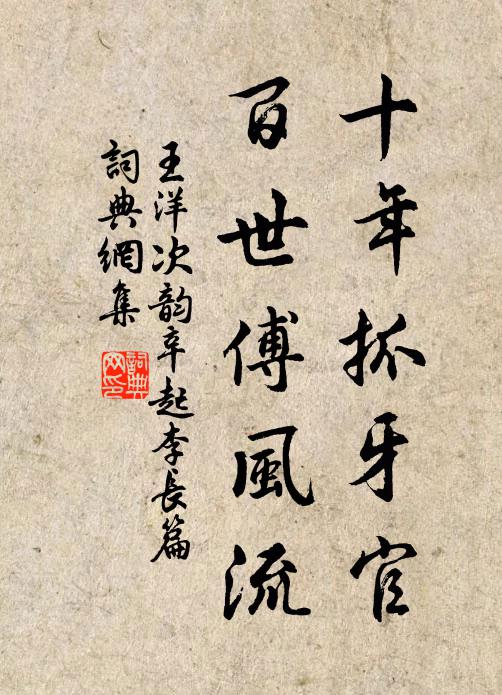 十年抓牙官
百世傅風流
王洋次韵辛起李長篇
詞典網集
詞典
网印